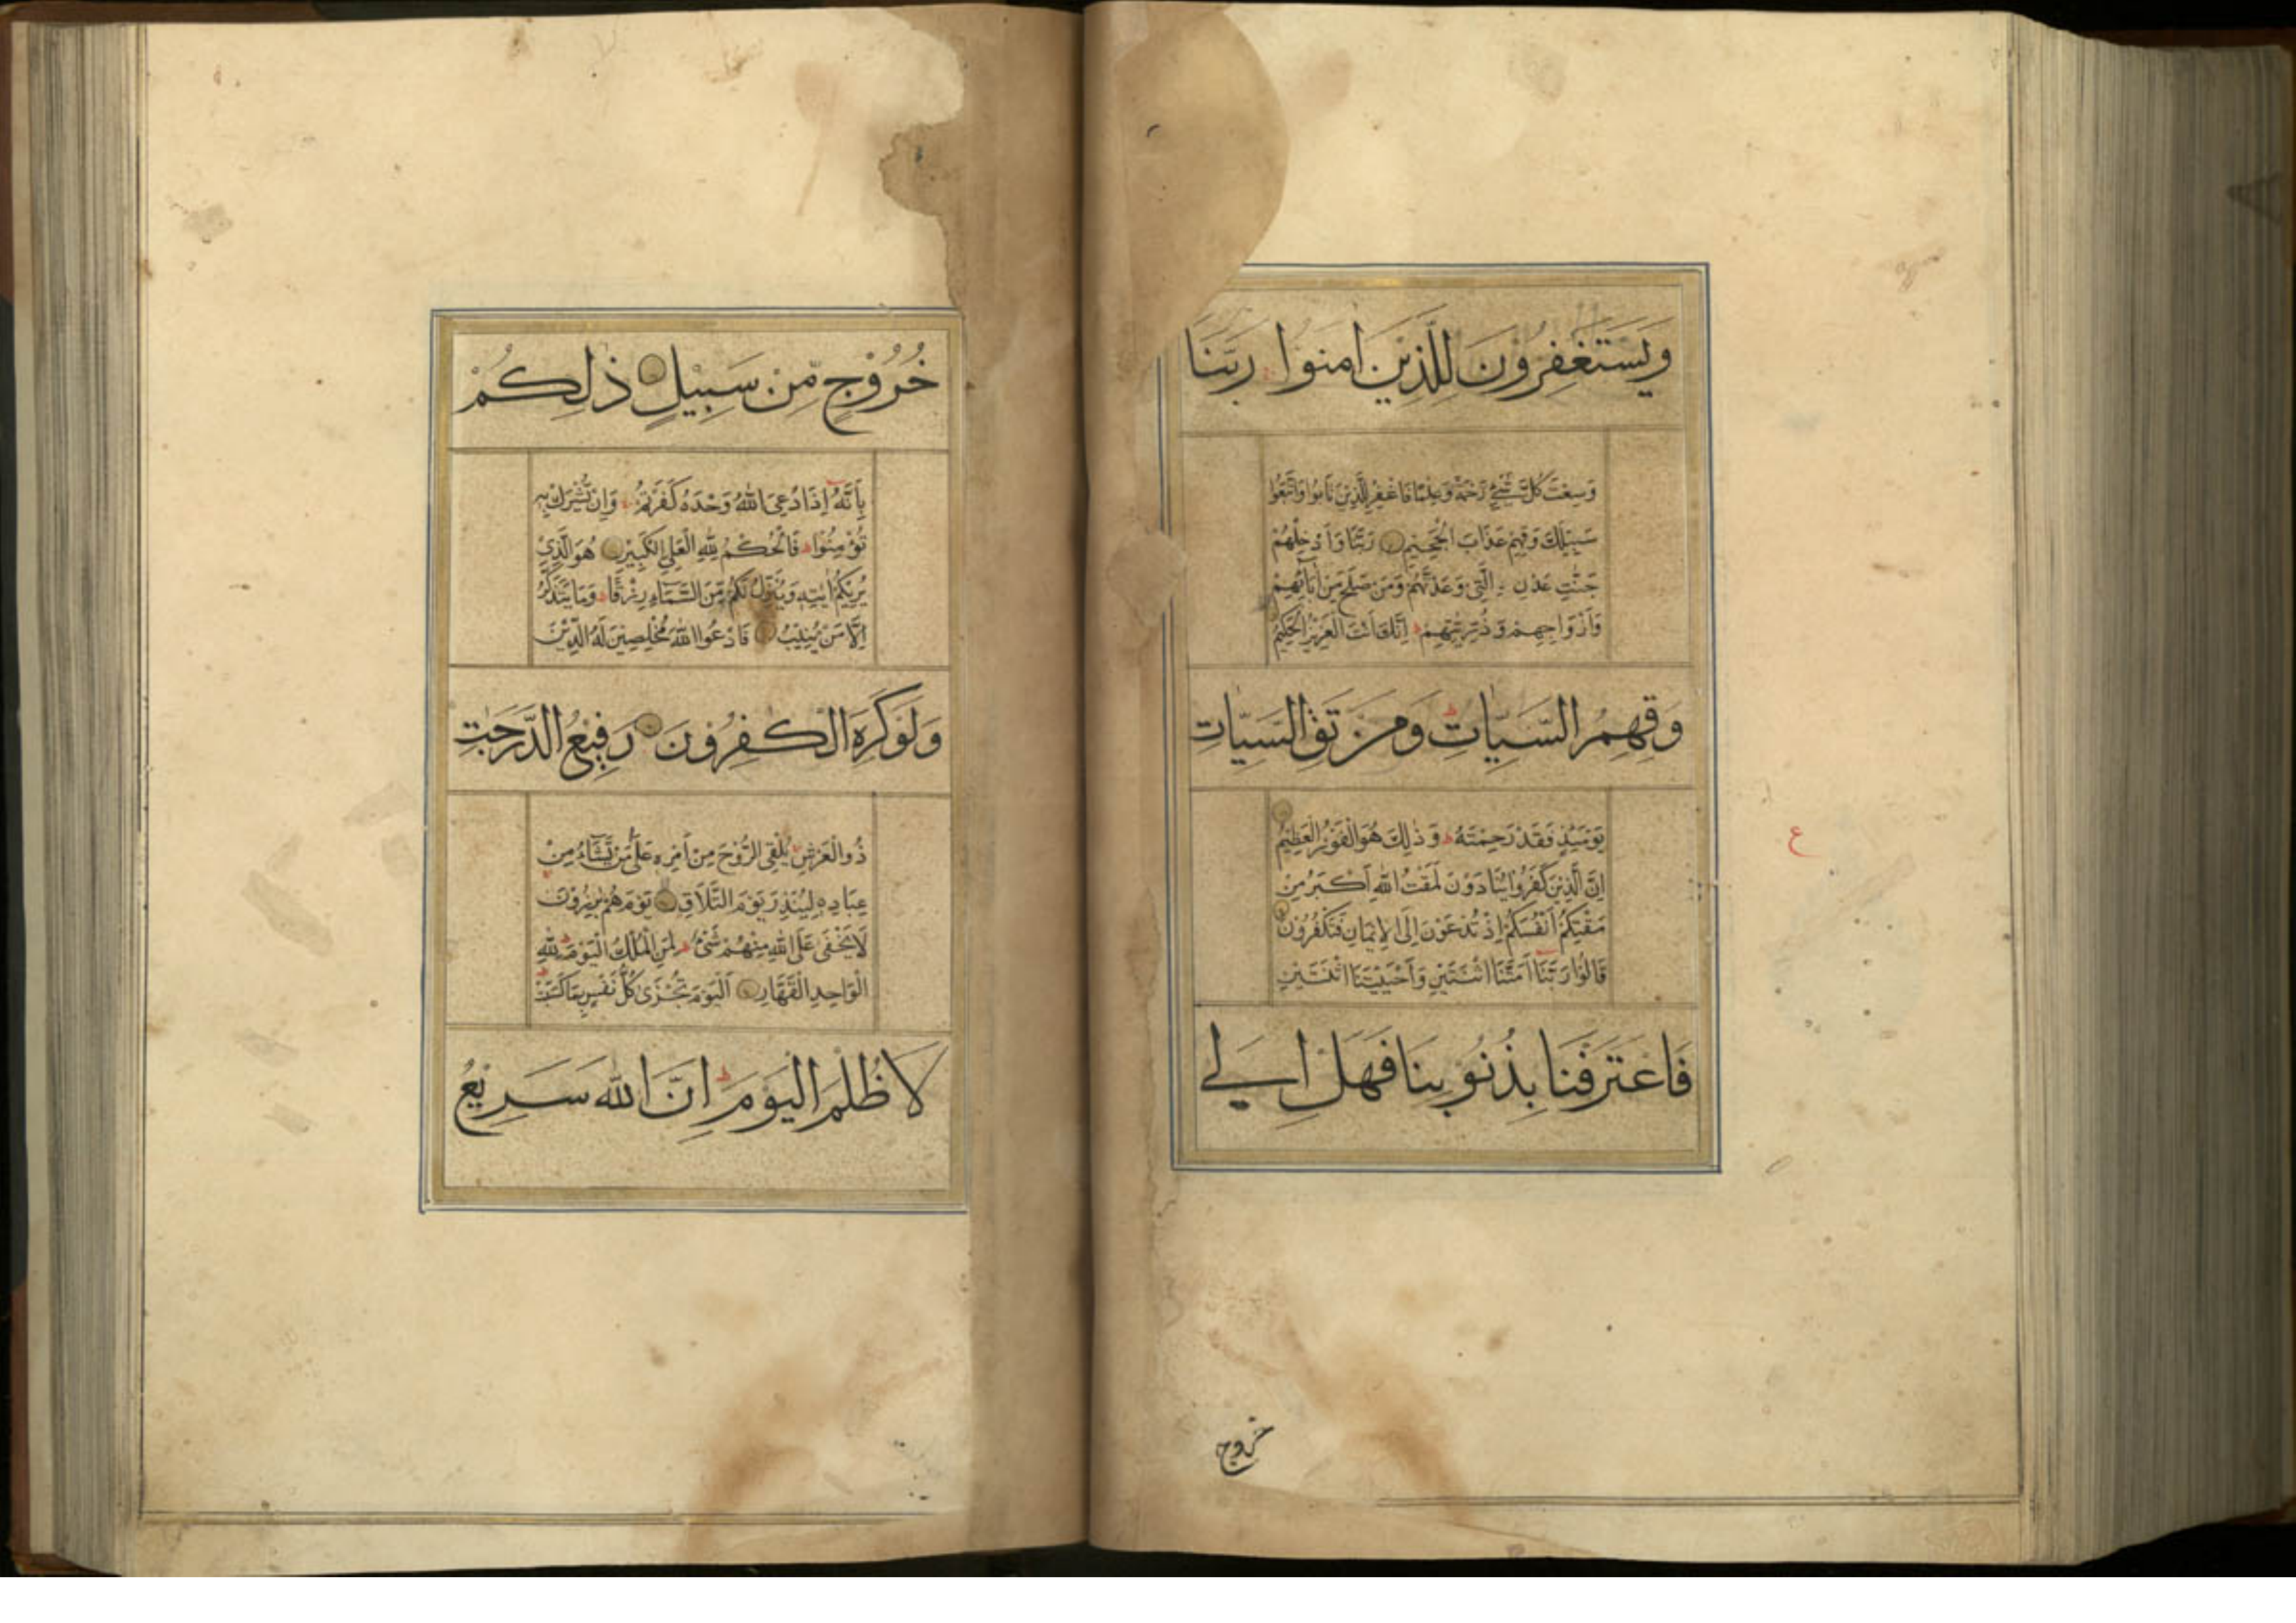 وَيَسْتَغْفِرُوْنَ لِلَّذِيْنَ اٰمَنُوْا رَبَّنَا
وَسِعْتَ كُلَّ شَیْءٍ رَّحْمَةً وَّعِلْمًا فَاغْفِرْ لِلَّذِيْنَ تَابُوْا وَاتَّبَعُوْا
سَبِيْلَكَ وَقِهِمْ عَذَابَ الْجَحِيْمِ رَبَّنَا وَاَدْخِلْهُمْ
جَنّٰتِ عَدْنِ ۣ الَّتِیْ وَعَدْتَّهُمْ وَمَنْ صَلَحَ مِنْ اٰبَآئِهِمْ
وَاَزْوَاجِهِمْ وَذُرِّيّٰتِهِمْ ط اِنَّكَ اَنْتَ الْعَزِيْزُ الْحَكِيْمُ
وَقِهِمُ السَّيِّاٰتِ ط وَمَنْ تَقِ السَّيِّاٰتِ
يَوْمَئِذٍ فَقَدْ رَحِمْتَهٗ ط وَ ذٰلِكَ هُوَ الْفَوْزُ الْعَظِيْمُ
ع
اِنَّ الَّذِيْنَ كَفَرُوْا يُنَادَوْنَ لَمَقْتُ اللّٰهِ اَكْبَرُ مِنْ
مَّقْتِكُمْ اَنْفُسَكُمْ اِذْ تُدْعَوْنَ اِلَى الْاِيْمَانِ فَتَكْفُرُوْنَ
قَالُوْا رَبَّنَا اَمَتَّنَا اثْنَتَيْنِ وَاَحْيَيْتَنَا اثْنَتَيْنِ
فَاعْتَرَفْنَا بِذُنُوْبِنَا فَهَلْ اِلٰی
خروج
خُرُوْجٍ مِّنْ سَبِيْلٍ ذٰلِكُمْ
بِاَنَّهٗ اِذَا دُعِیَ اللّٰهُ وَحْدَهٗ كَفَرْتُمْ وَاِنْ يُّشْرَكْ بِهٖ
تُؤْمِنُوْا ط فَالْحُكْمُ لِلّٰهِ الْعَلِیِّ الْكَبِيْرِ هُوَ الَّذِیْ
يُرِيْكُمْ اٰيٰتِهٖ وَيُنَزِّلُ لَكُمْ مِّنَ السَّمَآءِ رِزْقًا ط وَمَا يَتَذَكَّرُ
اِلَّا مَنْ يُّنِيْبُ فَادْعُوا اللّٰهَ مُخْلِصِيْنَ لَهُ الدِّيْنَ
وَلَوْ كَرِهَ الْكٰفِرُوْنَ رَفِيْعُ الدَّرَجٰتِ
ذُو الْعَرْشِ يُلْقِی الرُّوْحَ مِنْ اَمْرِهٖ عَلٰی مَنْ يَّشَآءُ مِنْ
عِبَادِهٖ لِيُنْذِرَ يَوْمَ التَّلَاقِ يَوْمَ هُمْ بٰرِزُوْنَ
لَا يَخْفٰی عَلَى اللّٰهِ مِنْهُمْ شَیْءٌ ط لِمَنِ الْمُلْكُ الْيَوْمَ ط لِلّٰهِ
الْوَاحِدِ الْقَهَّارِ اَلْيَوْمَ تُجْزٰی كُلُّ نَفْسٍ بِمَا كَسَبَتْ ط
لَا ظُلْمَ الْيَوْمَ ط اِنَّ اللّٰهَ سَرِيْعُ